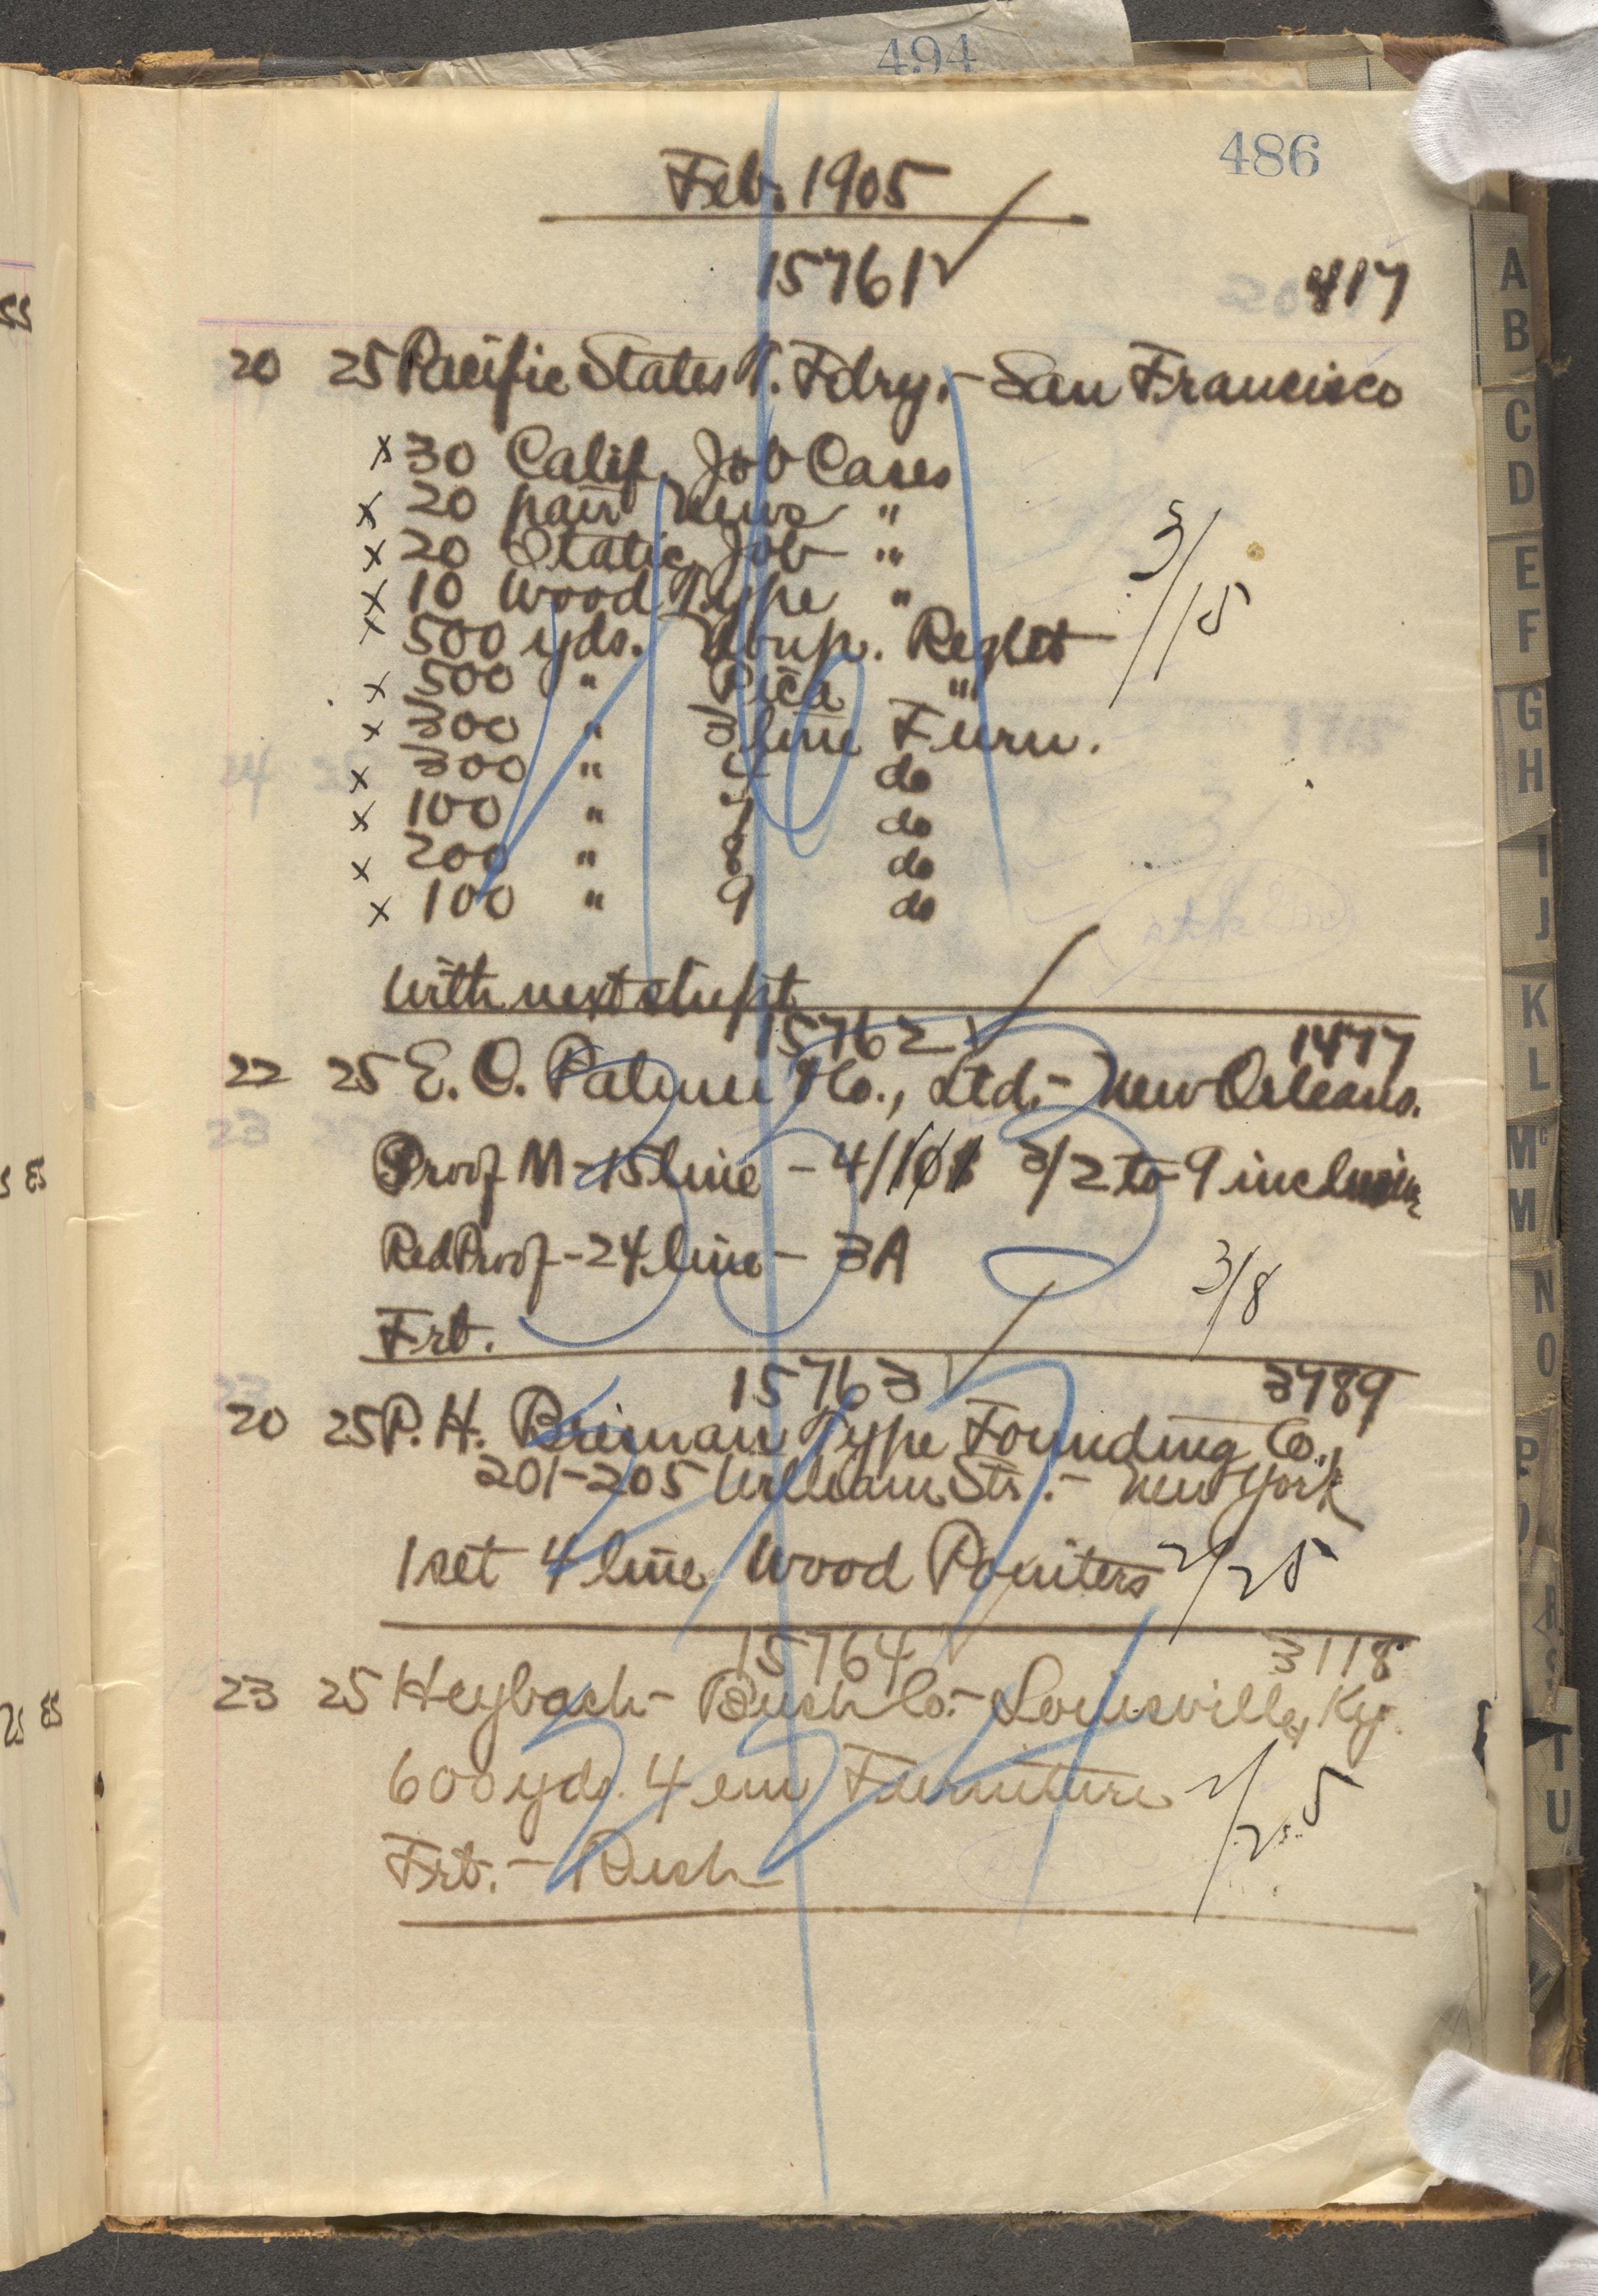 494
486
Feb. 1905
15761 ✓ 417
20 25 Pacific States T. Fdry. - San Francisco
x 30 Calif. Job Cases
x 20 pair News "
x 20 Italic Job "
x 10 Wood Type "
x 500 yds. Nonp. Reglet
x 500 " Pica "
x 300 " 3 line Furn.
x 300 " 4 do
x 100 " 7 do
x 200 " 8 do
x 100 " 9 do
3/15
With next shipt
15762 ✓ 1477
22 25 E. O. Palmer & Co., Ltd. - New Orleans.
Proof M - 15 line - 4/ 3/2 to 9 inclusive
Red Proof - 24 line - 3A
3/8
Frt.
15763 ✓ 3789
20 25 P. H. Type Founding Co.,
201-205 William St. - New York
1 set 4 line Wood Pointers 2/25
15764 ✓ 3118
23 25 Heybach - Bush Co. - Louisville, Ky.
600 yds. 4 em Furniture 2/25
Frt. - Rush
A
B
C
D
E
F
G
H
I
J
K
L
Mc
M
N
O
P
T
U